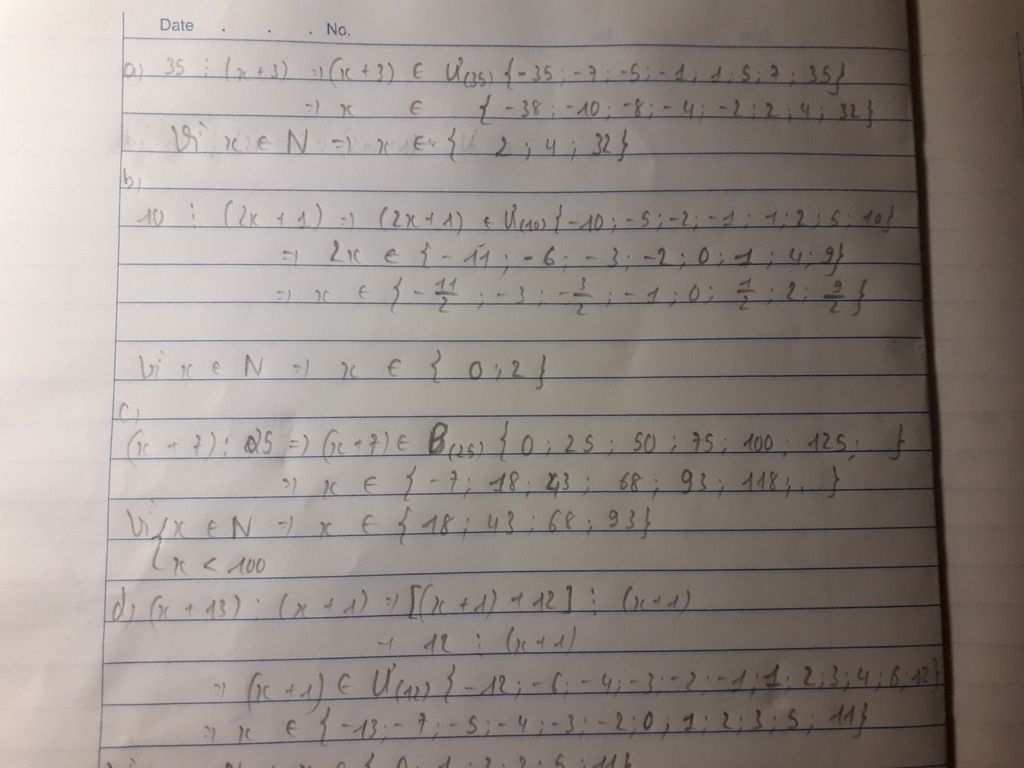 Date . . . No.
a) 35 ⋮ (x+3) => (x+3) ∈ Ư(35) {-35; -7; -5; -1; 1; 5; 7; 35}
=> x ∈ {-38; -10; -8; -4; -2; 2; 4; 32}
Vì x ∈ N => x ∈ { 2; 4; 32}
b,
10 ⋮ (2x + 1) => (2x+1) ∈ Ư(10) {-10; -5; -2; -1; 1; 2; 5; 10}
=> 2x ∈ {-11; -6; -3; -2; 0; 1; 4; 9}
=> x ∈ {-11/2; -3; -3/2; -1; 0; 1/2; 2; 9/2}
Vì x ∈ N => x ∈ { 0; 2 }
c,
(x + 7) ⋮ 25 => (x+7) ∈ B(25) { 0; 25; 50; 75; 100; 125; .. }
=> x ∈ {-7; 18; 43; 68; 93; 118; ...}
Vì { x ∈ N => x ∈ {18; 43; 68; 93}
x < 100
d, (x + 13) ⋮ (x + 1) => [(x + 1) + 12] ⋮ (x+1)
=> 12 ⋮ (x+1)
=> (x+1) ∈ Ư(12) {-12; -6; -4; -3; -2; -1; 1; 2; 3; 4; 6; 12}
=> x ∈ {-13; -7; -5; -4; -3; -2; 0; 1; 2; 3; 5; 11}